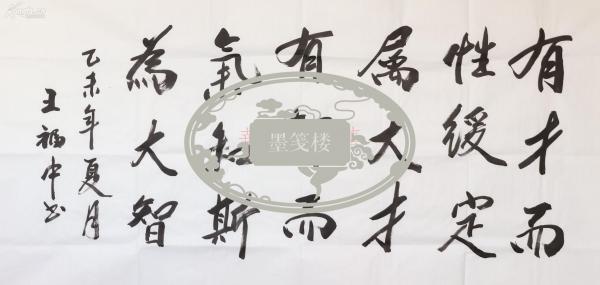 有才而
性缓定
属大才
有 而
氣和斯
為大智
乙未年夏月
王福中书
墨笺楼